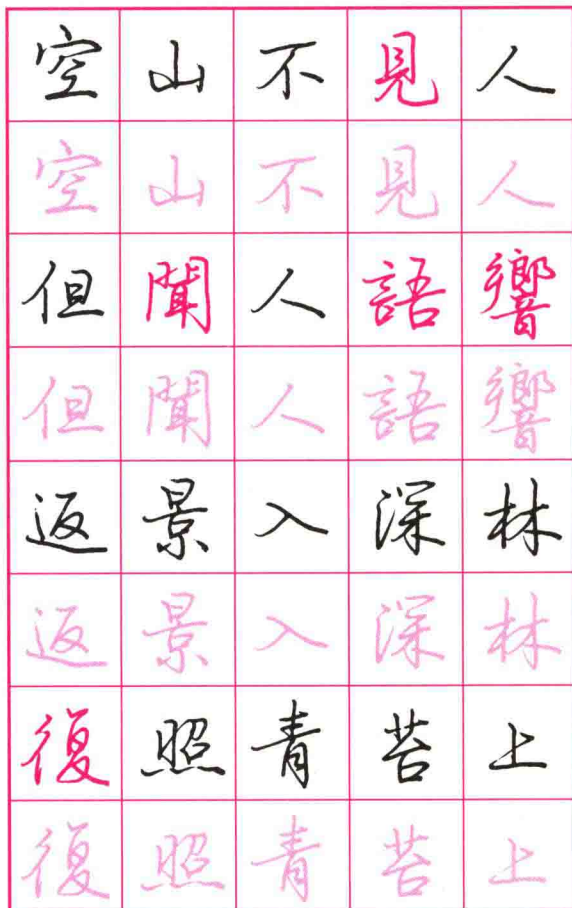 空山不見人
空山不見人
但聞人語響
但聞人語響
返景入深林
返景入深林
復照青苔上
復照青苔上